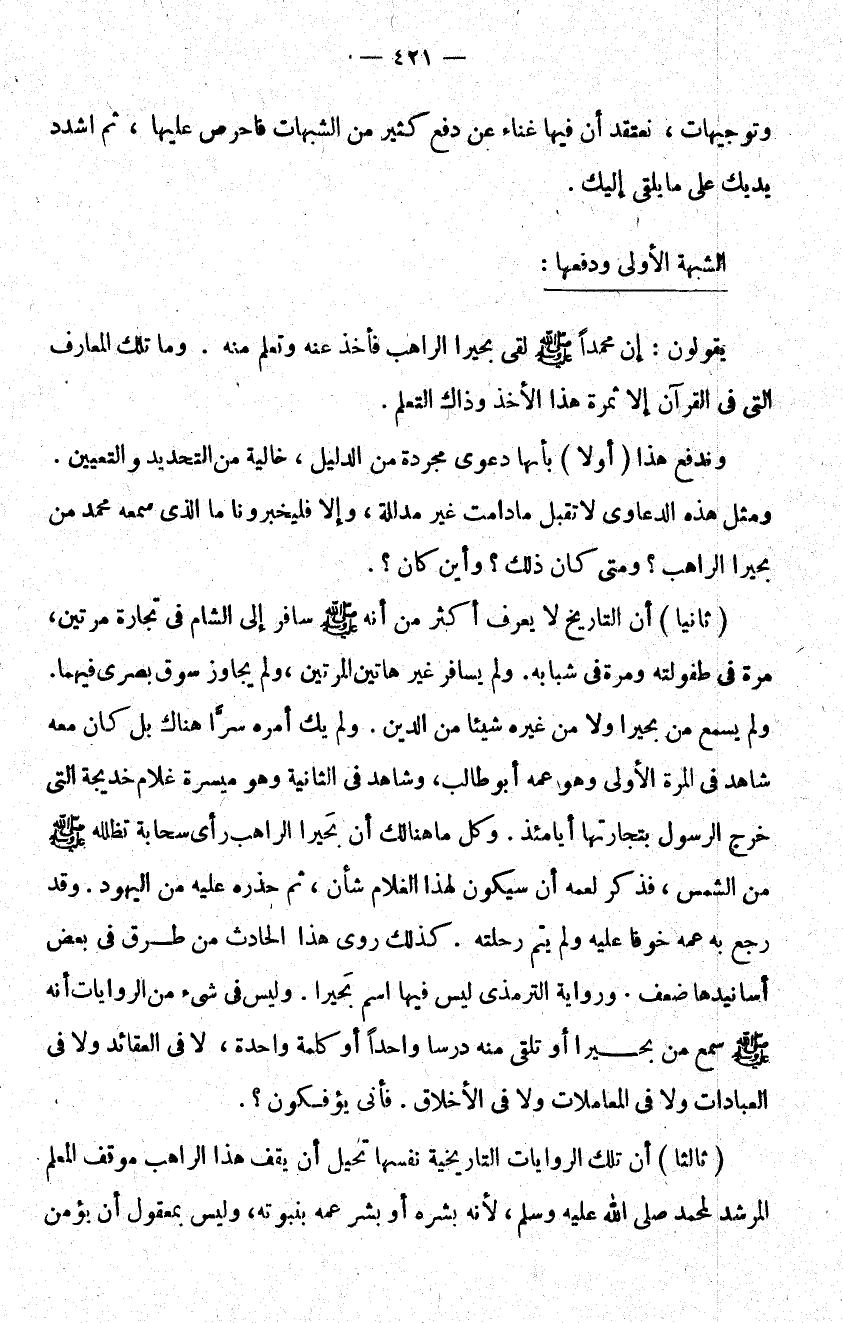 — ٤٢١ —
وتوجيهات ، نعتقد أن فيها غناء عن دفع كثير من الشبهات فاحرص عليها ، ثم اشدد
يديك على ما يلقى إليك .
الشبهة الأولى ودفعها :
يقولون : إن محمداً ﷺ لقى بحيرا الراهب فأخذ عنه وتعلم منه . وما تلك المعارف
التى فى القرآن إلا ثمرة هذا الأخذ وذاك التعلم .
وندفع هذا ( أولا ) بأنها دعوى مجردة من الدليل ، خالية من التحديد والتعيين .
ومثل هذه الدعاوى لا تقبل مادامت غير مدللة ، وإلا فليخبرونا ما الذى سمعه محمد من
بحيرا الراهب ؟ ومتى كان ذلك ؟ وأين كان ؟ .
( ثانيا ) أن التاريخ لا يعرف أكثر من أنه ﷺ سافر إلى الشام فى تجارة مرتين،
مرة فى طفولته ومرة فى شبابه. ولم يسافر غير هاتين المرتين ،ولم يجاوز سوق بصرى فيهما.
ولم يسمع من بحيرا ولا من غيره شيئا من الدين . ولم يك أمره سرًّا هناك بل كان معه
شاهد فى المرة الأولى وهو عمه أبو طالب، وشاهد فى الثانية وهو ميسرة غلام خديجة التى
خرج الرسول بتجارتها أيامئذ . وكل ما هنالك أن بَحيرا الراهب رأى سحابة تظلله ﷺ
من الشمس ، فذكر لعمه أن سيكون لهذا الغلام شأن ، ثم حذره عليه من اليهود . وقد
رجع به عمه خوفا عليه ولم يتم رحلته . كذلك روى هذا الحادث من طرق فى بعض
أسانيدها ضعف . ورواية الترمذى ليس فيها اسم بَحيرا . وليس فى شىء من الروايات أنه
ﷺ سمع من بحيرا أو تلقى منه درسا واحداً أو كلمة واحدة ، لا فى العقائد ولا فى
العبادات ولا فى المعاملات ولا فى الأخلاق . فأنى يؤفكون ؟ .
( ثالثا ) أن تلك الروايات التاريخية نفسها تحيل أن يقف هذا الراهب موقف المعلم
المرشد لمحمد صلى الله عليه وسلم ، لأنه بشره أو بشر عمه بنبوته، وليس بمعقول أن يؤمن